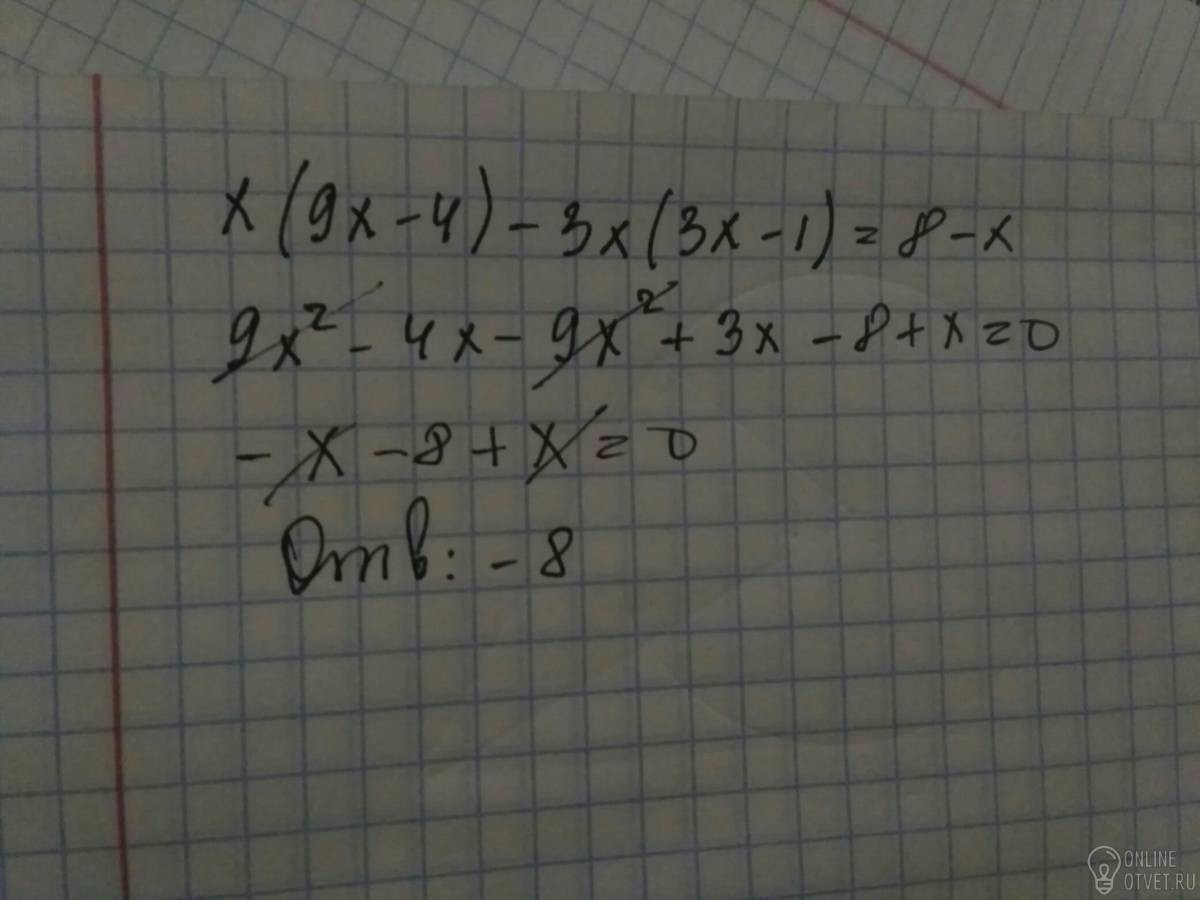 x(9x-4)-3x(3x-1)=8-x
9x²-4x-9x²+3x-8+x=0
-x-8+x=0
Отв: -8
ONLINE
OTVET.RU